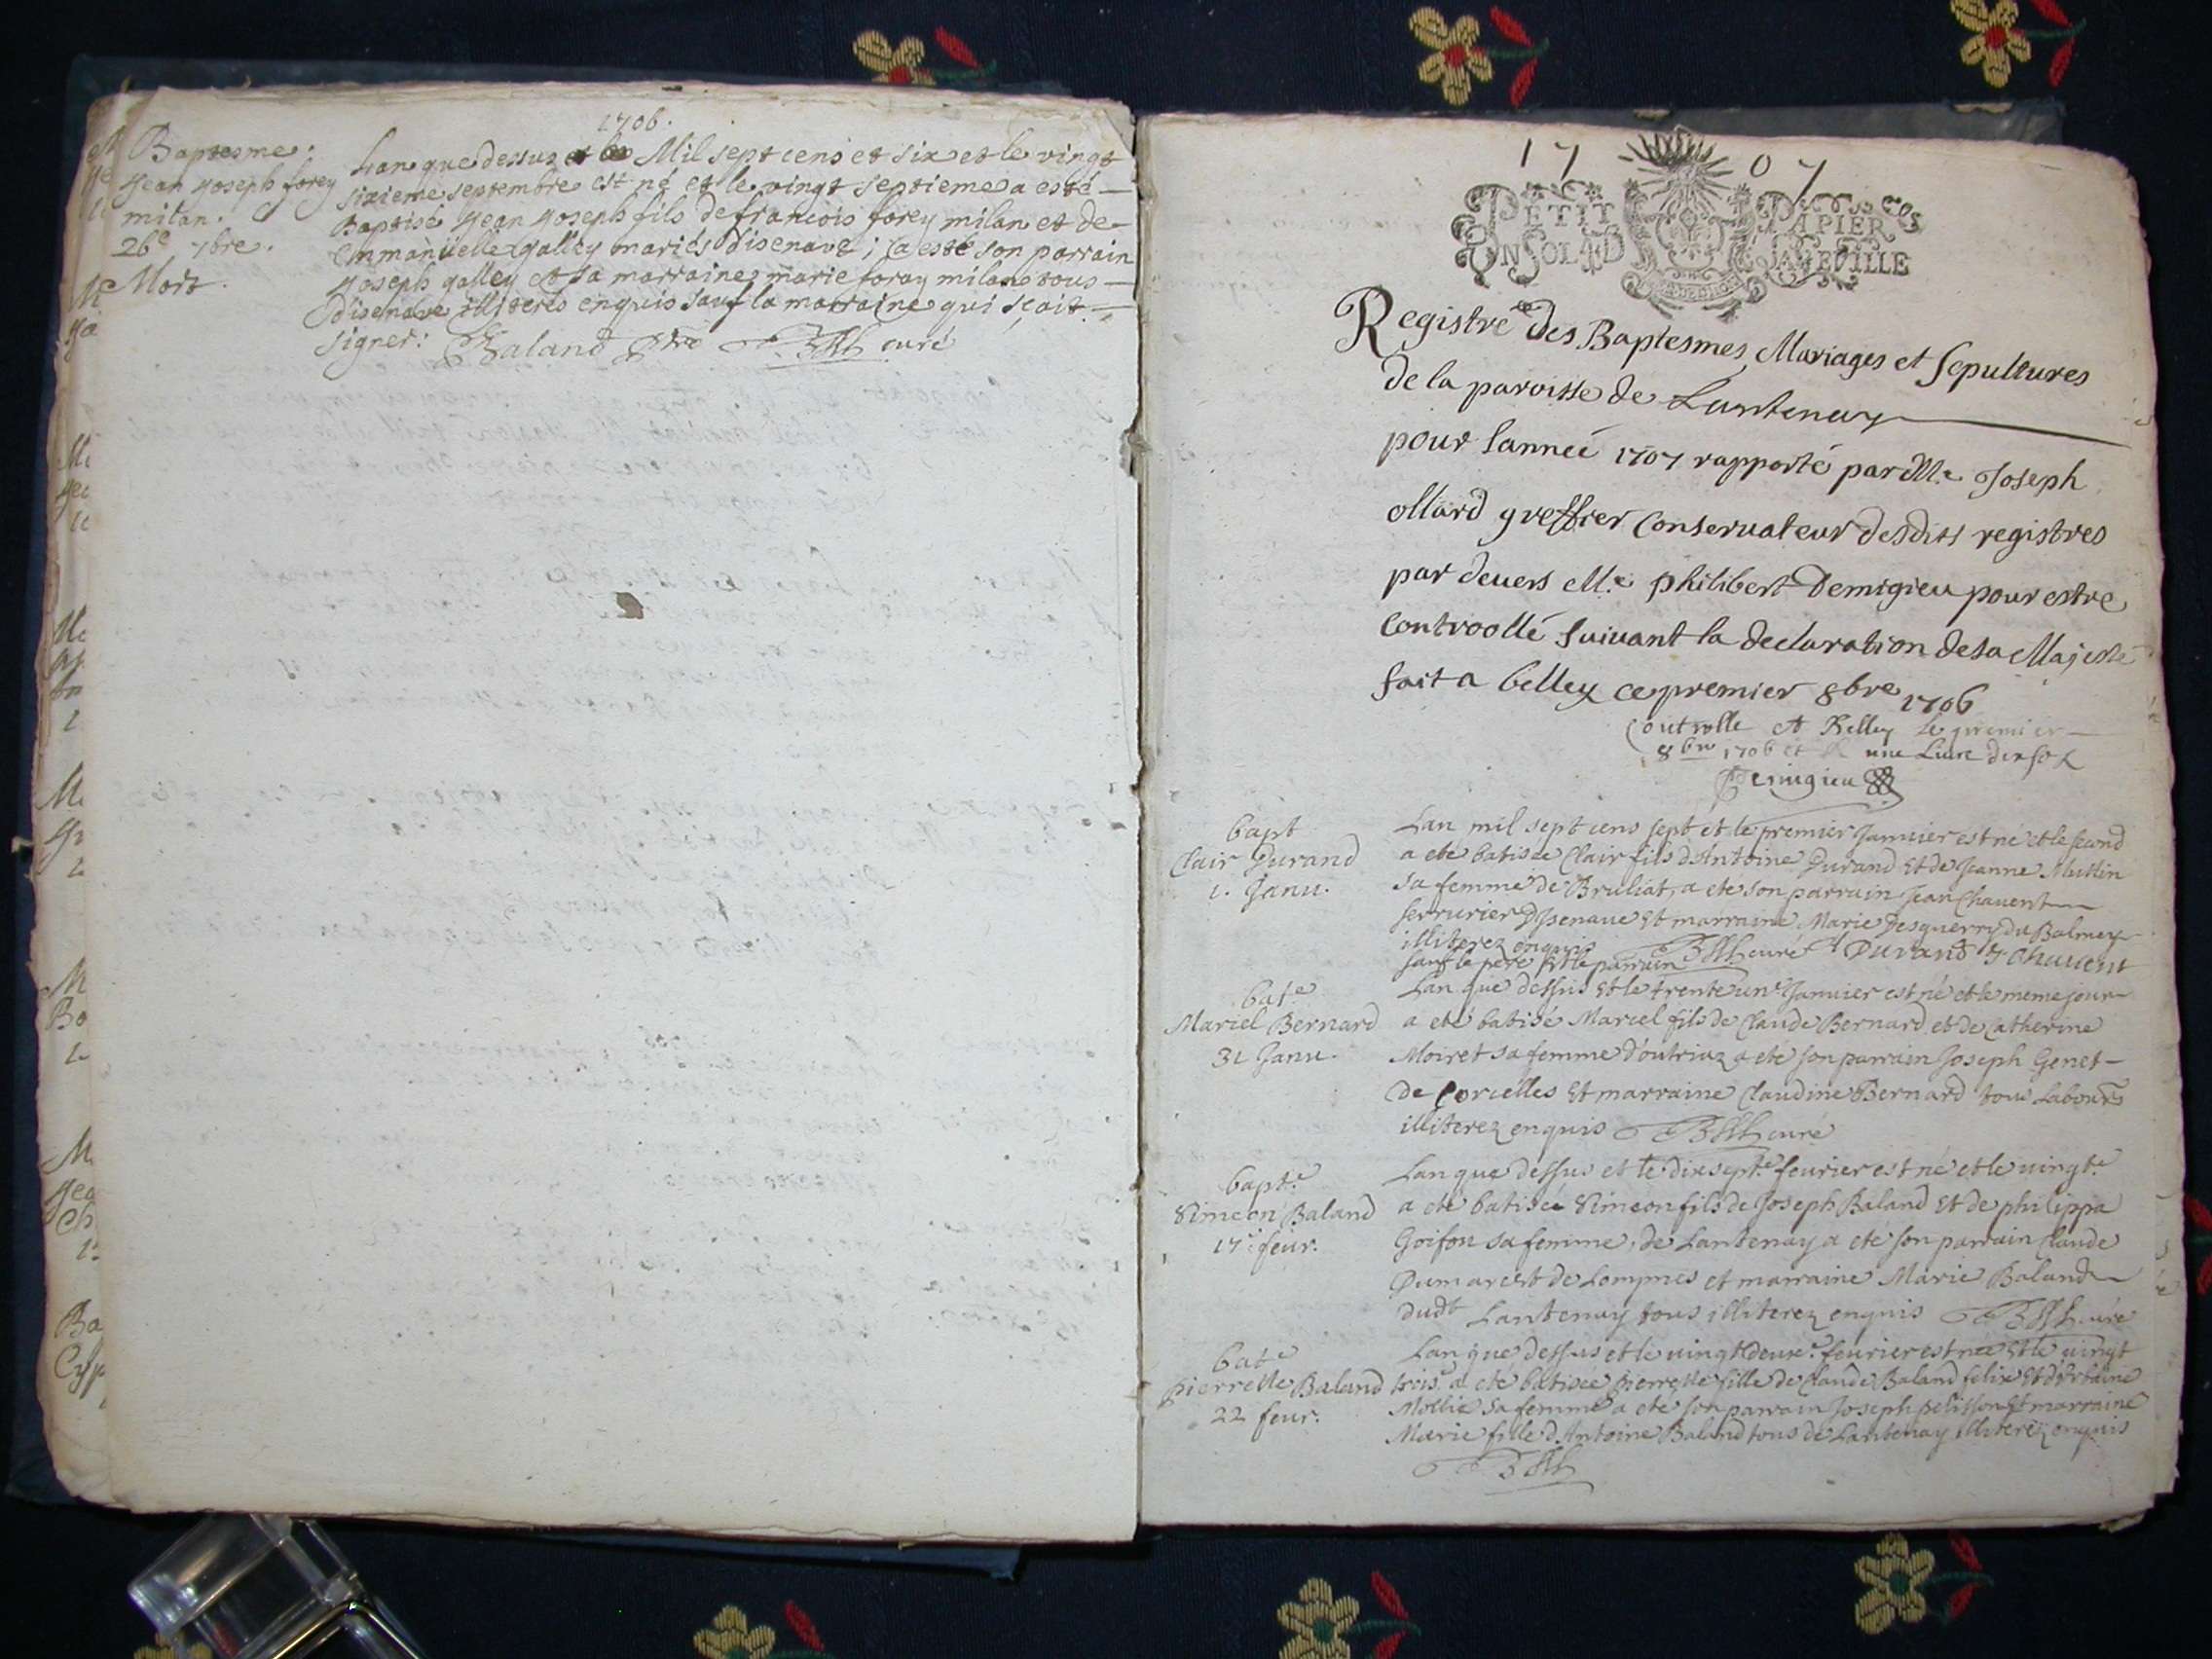 1706.
Baptesme.
Jean Joseph forey
milan.
26e 7bre.
Mort.
Lan que dessus Mil sept cens et six et le vingt
sixieme septembre est né et le vingt septieme a esté
Baptisé Jean Joseph fils de francois forey milan et de
Enmanuelle galley mariés disenave; a esté son parrain
Joseph galley et sa marraine marie foray milan tous
disenave illiterés enquis sauf la marraine qui sçait
signer: Baland ptre curé
1707
PETIT PAPIER
UN SOL 4D LA FEUILLE
Registre des Baptesmes Mariages et Sepultures
de la paroisse de Lantenay
pour lanneé 1707 rapporté par Me Joseph
ollard greffier Conservateur desdits registres
par devers Me philibert Demigieu pour estre
Controollé suivant la declaration de sa Majesté
fait a belley ce premier 8bre 1706
Controlle A Belley le premier
8bre 1706 et R une Livre dix sol
Demigieu
bapt
Clair Durand
1. Janu.
Lan mil sept cens sept et le premier Janvier est né et le second
a eté batisée Clair fils d'Antoine Durand Et de Jeanne Mutlin
sa femme de Bruliat, a eté son parrain Jean Chavent
serrurier DJsenave Et marraine Marie Desguerry du Balmey
illiterez enquis
sauf le pere Et le parrain curé Durand J Chavent
bate
Mariel Bernard
31 Janu.
Lan que dessus et le trente une Janvier est né et le meme jour
a eté batisé Marcel fils de Claude Bernard et de Catherine
Moiret sa femme d'outriaz a eté son parrain Joseph Genet
de Corcelles Et marraine Claudine Bernard tous Labours
illiterez enquis curé
bapte
Simeon Baland
17e feur.
Lan que dessus et le dixsepte feurier est né et le vingte
a eté batisée Simeon fils de Joseph Baland Et de philippa
Goifon sa femme, de Lantenay a eté son parrain Claude
Dumarest de Lompnes et marraine Marie Baland
dudt Lantenay tous illiterez enquis curé
bate
pierrette Baland
22 feur.
Lan que dessus et le vingt deuxe feurier est née Et le vingt
trois a eté batisée pierrette fille de Claude Baland felix Et
Mollie sa femme a eté son parrain Joseph pelisson Et marraine
Marie fille d'Antoine Baland tous de Lantenay illiterez enquis